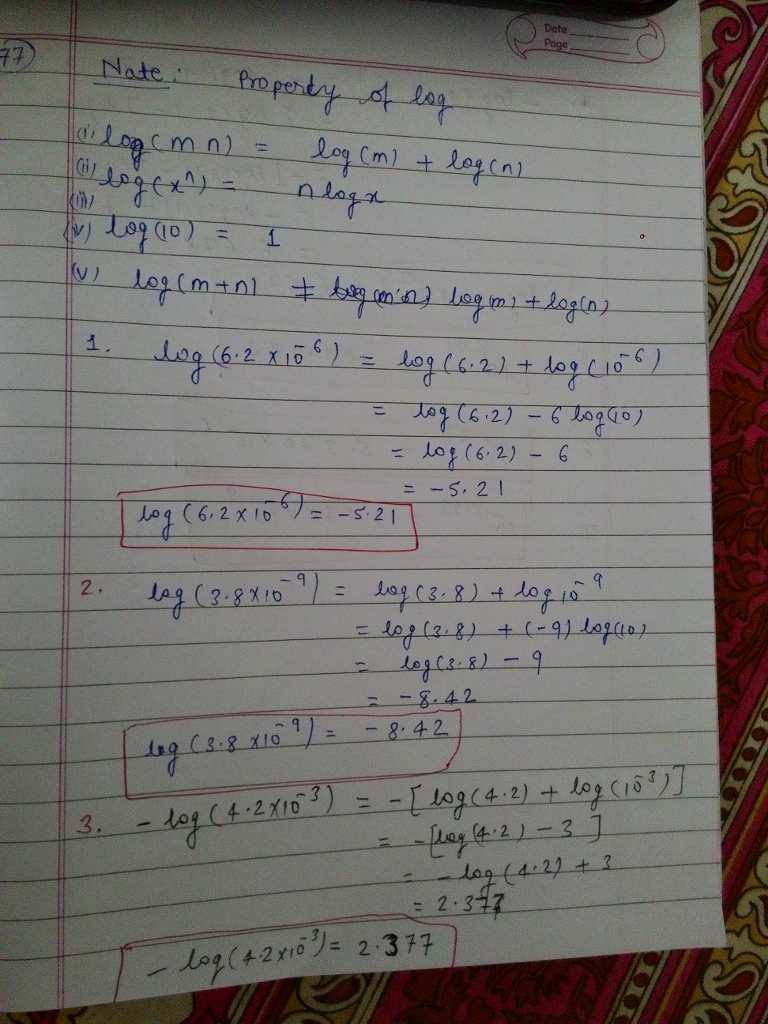 Date
Page
77
Note: Property of log
(i) log(mn) = log(m) + log(n)
(ii) log(xⁿ) = n log x
(iii)
(iv) log(10) = 1
(v) log(m+n) ≠ log(m) + log(n)
1. log(6.2 x 10⁻⁶) = log(6.2) + log(10⁻⁶)
= log(6.2) - 6 log(10)
= log(6.2) - 6
= -5.21
log(6.2x10⁻⁶) = -5.21
2. log(3.8x10⁻⁹) = log(3.8) + log 10⁻⁹
= log(3.8) + (-9) log(10)
= log(3.8) - 9
= -8.42
log(3.8x10⁻⁹) = -8.42
3. -log(4.2x10⁻³) = -[log(4.2) + log(10⁻³)]
= -[log(4.2) - 3]
= -log(4.2) + 3
= 2.377
-log(4.2x10⁻³) = 2.377